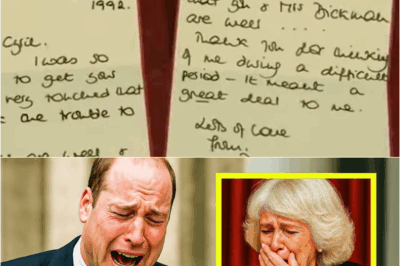 1992.
Cyril.
I was so
to get your
very touched that
trouble to
that you & Mrs Dickman
are well ....
Thank you for thinking
of me during a difficult
period – it meant a
great deal to me.
Lots of love
from,